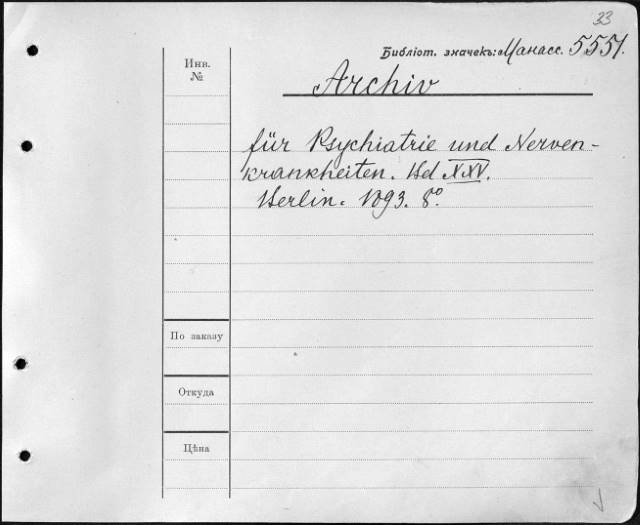 33
Библіот. значекъ: Манасс. 5551.
Инв.
№
Archiv
für Psychiatrie und Nerven-
krankheiten. Bd XXV.
Berlin. 1893. 8º.
По заказу
Откуда
Цѣна